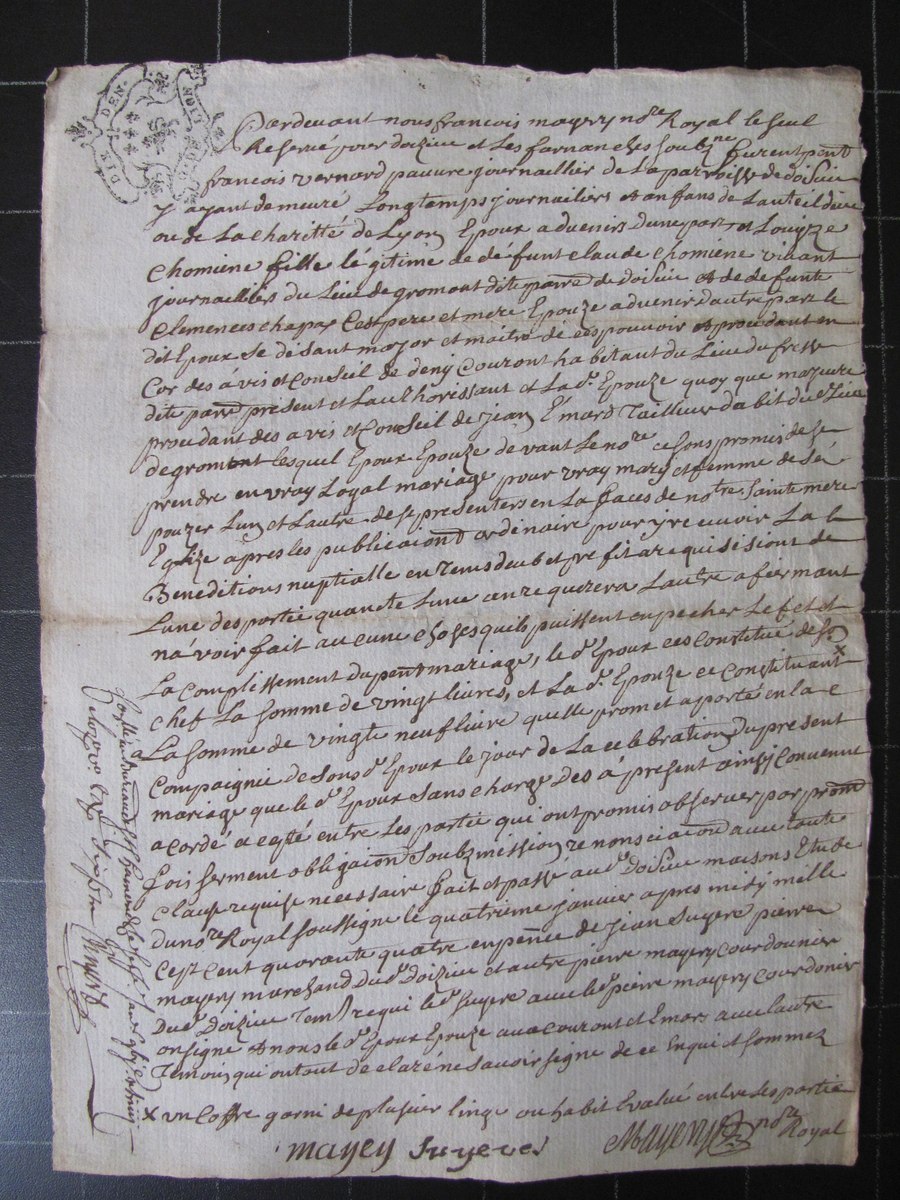 DIX DEN
LION
Pardevant nous francois mayery no.re Royal le seul
Reservé pour doizieu et Les farnanches soubz.ne furent p.nt
francois vernard pauvre journaillier de La parroisse de doisieu
y ayant demeuré Longtemps journailiers et anfans de Lauteil dieu
ou de La charitté de Lyon Epoux advenirs dune part et Louyze
Chomiene fille légitime de défunt claude chomiene vivant
journailliers du Lieu de gromont dite parre de doisieu et de defunte
Clemences chepas Cest pere et mere Epouze advenir dautre part le
dit Epoux se desant major et maitre de ces pouvoir et procedant en
Cor des avis et Conseil de deny Couront habitant du Lieu du
dite parre present et Laucthorissant et La d.e Epouze quoy que majeure
procedant des avis et Conseil de jean Emard Tailleur dabit du d.t Lieu
de gromont lesquel Epoux Epouze devant Le no.re ce sons promis de se
prendre en vray Loyal mariage pour vray mary et femme de sé
pouzer Lun et Lautre de se presenters en La faces de notre Sainte mere
Eglize apres les publicaiont ordenaire pour y recuvoir La
Beneditions nuptialle en Tems deub et prefit a requisisiont de
Lune des partie quancte Lune an requerera Lautre afiermant
navoir fait aucune choses quils puissent enpecher Le fet et
La Complissement du p.nt mariage, le d.t Epoux ces Constitué de
chef La somme de vingt livres, et La d.e Epouze ce Constituant x
La somme de vingte neuf livre quelle promet aporté en la c
Compaignie de Sond.t Epoux le jour de La celebration du present
mariage que le d.t Epoux sans charge des á present ainsy convenue
acordé acepté entre Les partie qui ont promis observer par
fois serment obligaion soubzmission renonsciaion avec toute
clause requise necessaire fait et passé au d.t Doisieu maisons Etude
du no.re Royal soussigne le quatrieme janvier apres midy mille
Cept cent quarante quatre en p.ence de jean Suyere pierre
mayery marchand du d.t Doizieu et autre pierre mayery courdounier
du d.t Doizieu Tem requi le d.t Suyere avec le d.t pierre mayery courdonier
on signé et non le d.t Epoux Epouze aux couront et Emars avec lautre
Temoins qui ont out declaré ne savoir signe de ce Enqui et sommez
x un Coffre garni de plusier linge ou habit Evalué entre Les partie
mayery Suyeres Mayery no.re Royal